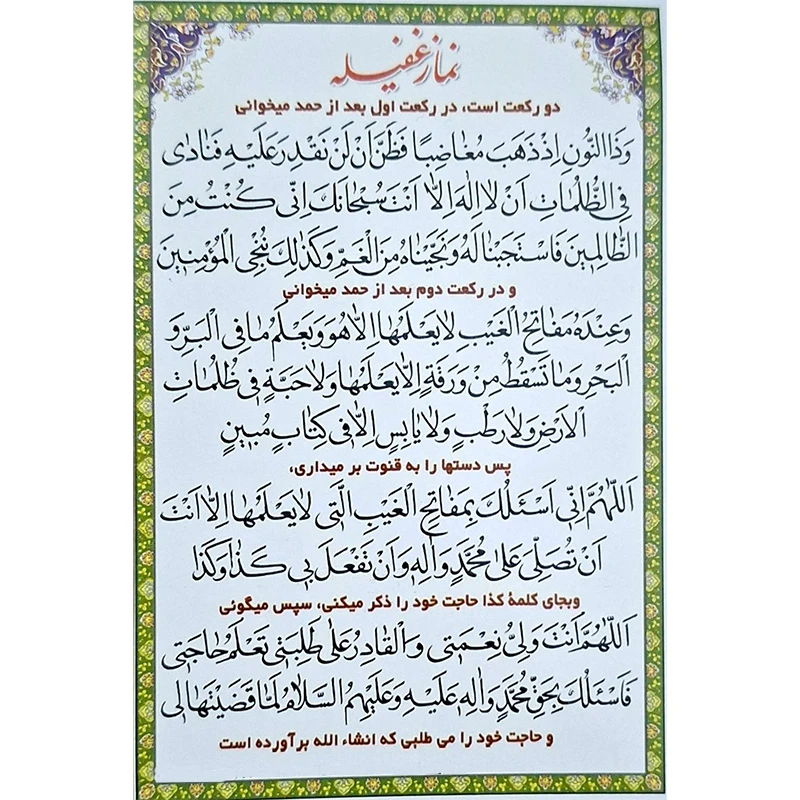 نماز غفیله
دو رکعت است، در رکعت اول بعد از حمد میخوانی
وَذَا النُّونِ اِذْ ذَهَبَ مُغٰاضِبًا فَظَنَّ اَنْ لَنْ نَقْدِرَ عَلَیْهِ فَنٰادٰی
فِی الظُّلُمٰاتِ اَنْ لٰا اِلٰهَ اِلّٰا اَنْتَ سُبْحٰانَكَ اِنّی کُنْتُ مِنَ
الظّٰالِمٖینَ فَاسْتَجَبْنٰا لَهُ وَنَجَّیْنٰاهُ مِنَ الْغَمِّ وَکَذٰلِكَ نُنْجِی الْمُؤْمِنٖینَ
و در رکعت دوم بعد از حمد میخوانی
وَعِنْدَهُ مَفٰاتِحُ الْغَیْبِ لٰا یَعْلَمُهٰا اِلّٰا هُوَ وَیَعْلَمُ مٰا فِی الْبَرِّ وَ
الْبَحْرِ وَمٰا تَسْقُطُ مِنْ وَرَقَةٍ اِلّٰا یَعْلَمُهٰا وَلٰا حَبَّةٍ فٖی ظُلُمٰاتِ
الْاَرْضِ وَلٰا رَطْبٍ وَلٰا یٰابِسٍ اِلّٰا فٖی کِتٰابٍ مُبٖینٍ
پس دستها را به قنوت بر میداری،
اَللّٰهُمَّ اِنّٖی اَسْئَلُكَ بِمَفٰاتِحِ الْغَیْبِ الَّتٖی لٰا یَعْلَمُهٰا اِلّٰا اَنْتَ
اَنْ تُصَلِّیَ عَلٰی مُحَمَّدٍ وَاٰلِهٖ وَاَنْ تَفْعَلَ بٖی کَذٰا وَکَذٰا
وبجای کلمۀ کذا حاجت خود را ذکر میکنی، سپس میگوئی
اَللّٰهُمَّ اَنْتَ وَلِیُّ نِعْمَتٖی وَالْقٰادِرُ عَلٰی طَلِبَتٖی تَعْلَمُ حٰاجَتٖی
فَاَسْئَلُكَ بِحَقِّ مُحَمَّدٍ وَاٰلِهٖ عَلَیْهِ وَعَلَیْهِمُ السَّلٰامُ لَمّٰا قَضَیْتَهٰا لٖی
و حاجت خود را می طلبی که انشاء الله برآورده است